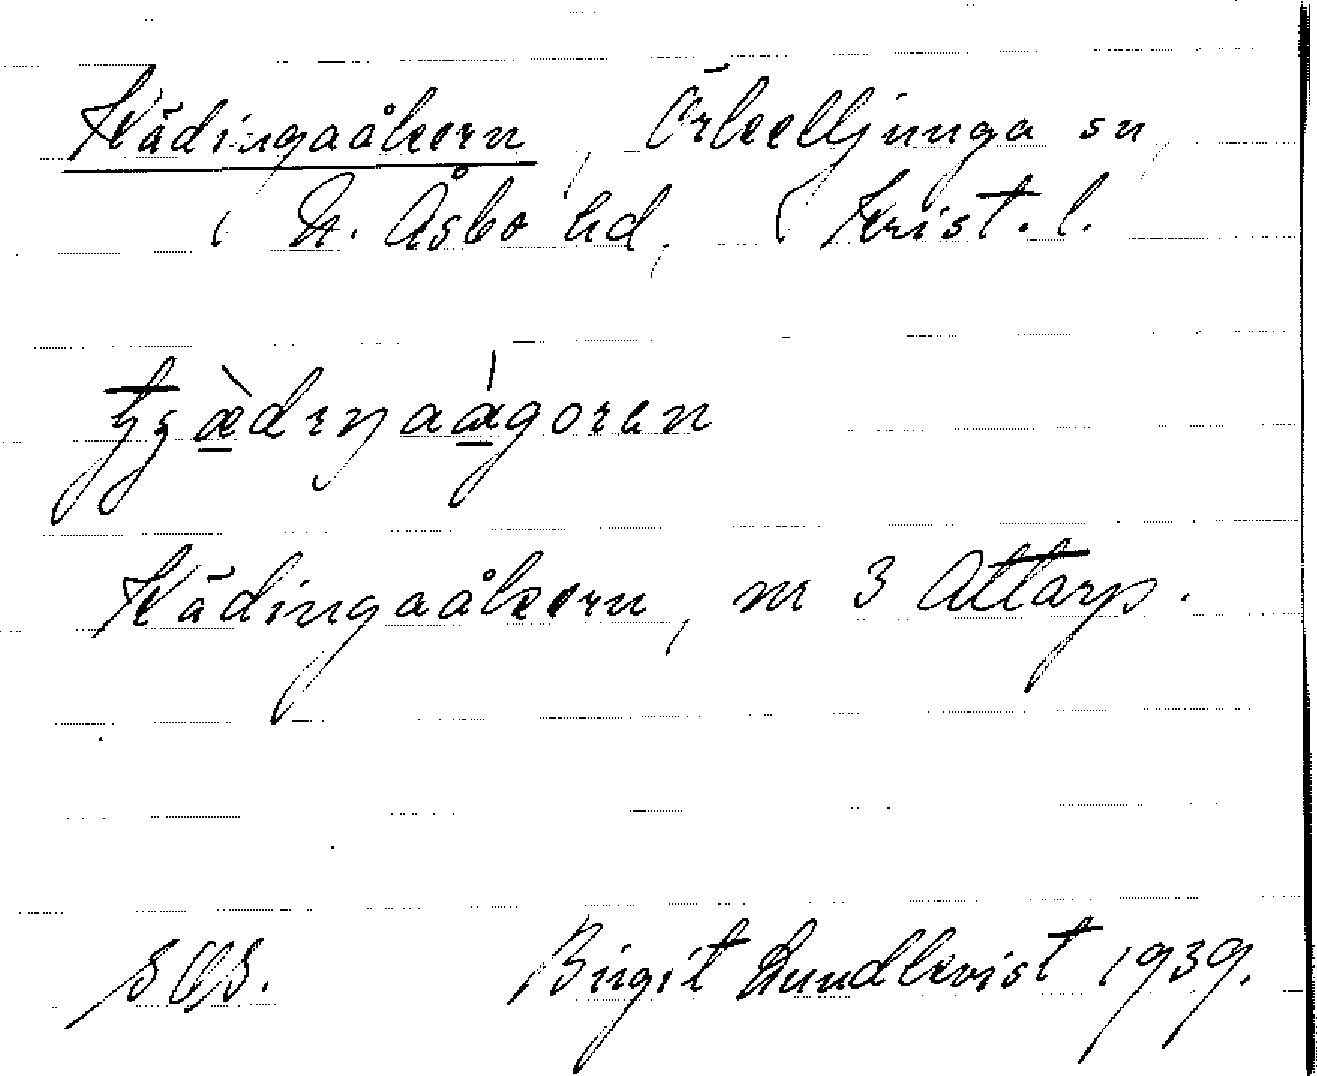 Kädingaåkern, Örkelljunga sn,
N. Åsbo hd, Krist. l.
Kädingaåkern, nr 3 Attarp.
Birgit Lundkvist 1939.